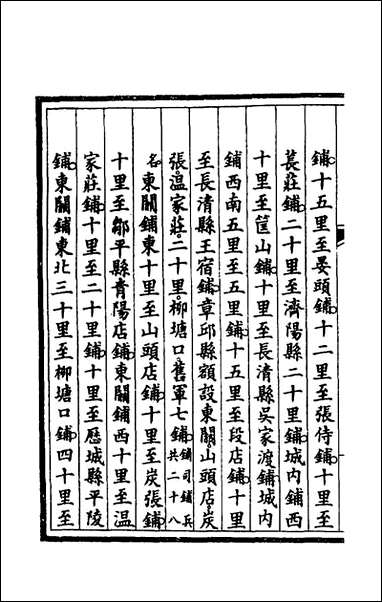 鋪十五里至晏頭鋪十二里至張侍鋪十里至
萇莊鋪二十里至濟陽縣二十里鋪城內鋪西
十里至筐山鋪十里至長清縣吳家渡鋪城內
鋪西南五里至五里鋪十五里至段店鋪十里
至長清縣王宿鋪章邱縣額設東關山頭店炭
張溫家莊二十里柳塘口舊軍七鋪鋪司鋪兵共二十八
名東關鋪東十里至山頭店鋪十里至炭張鋪
十里至鄒平縣青陽店鋪東關鋪西十里至溫
家莊鋪十里至二十里鋪十里至歷城縣平陵
鋪東關鋪東北三十里至柳塘口鋪四十里至